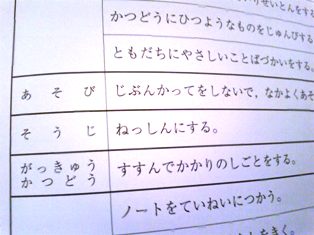 せいとんをする
かつどうにひつようなものをじゅんびする
ともだちにやさしいことばづかいをする。
あそび
じぶんかってをしないで、なかよくあそ
そうじ
ねっしんにする。
がっきゅう
かつどう
すすんでかかりのしごとをする。
ノートをていねいにつかう。
をきく。